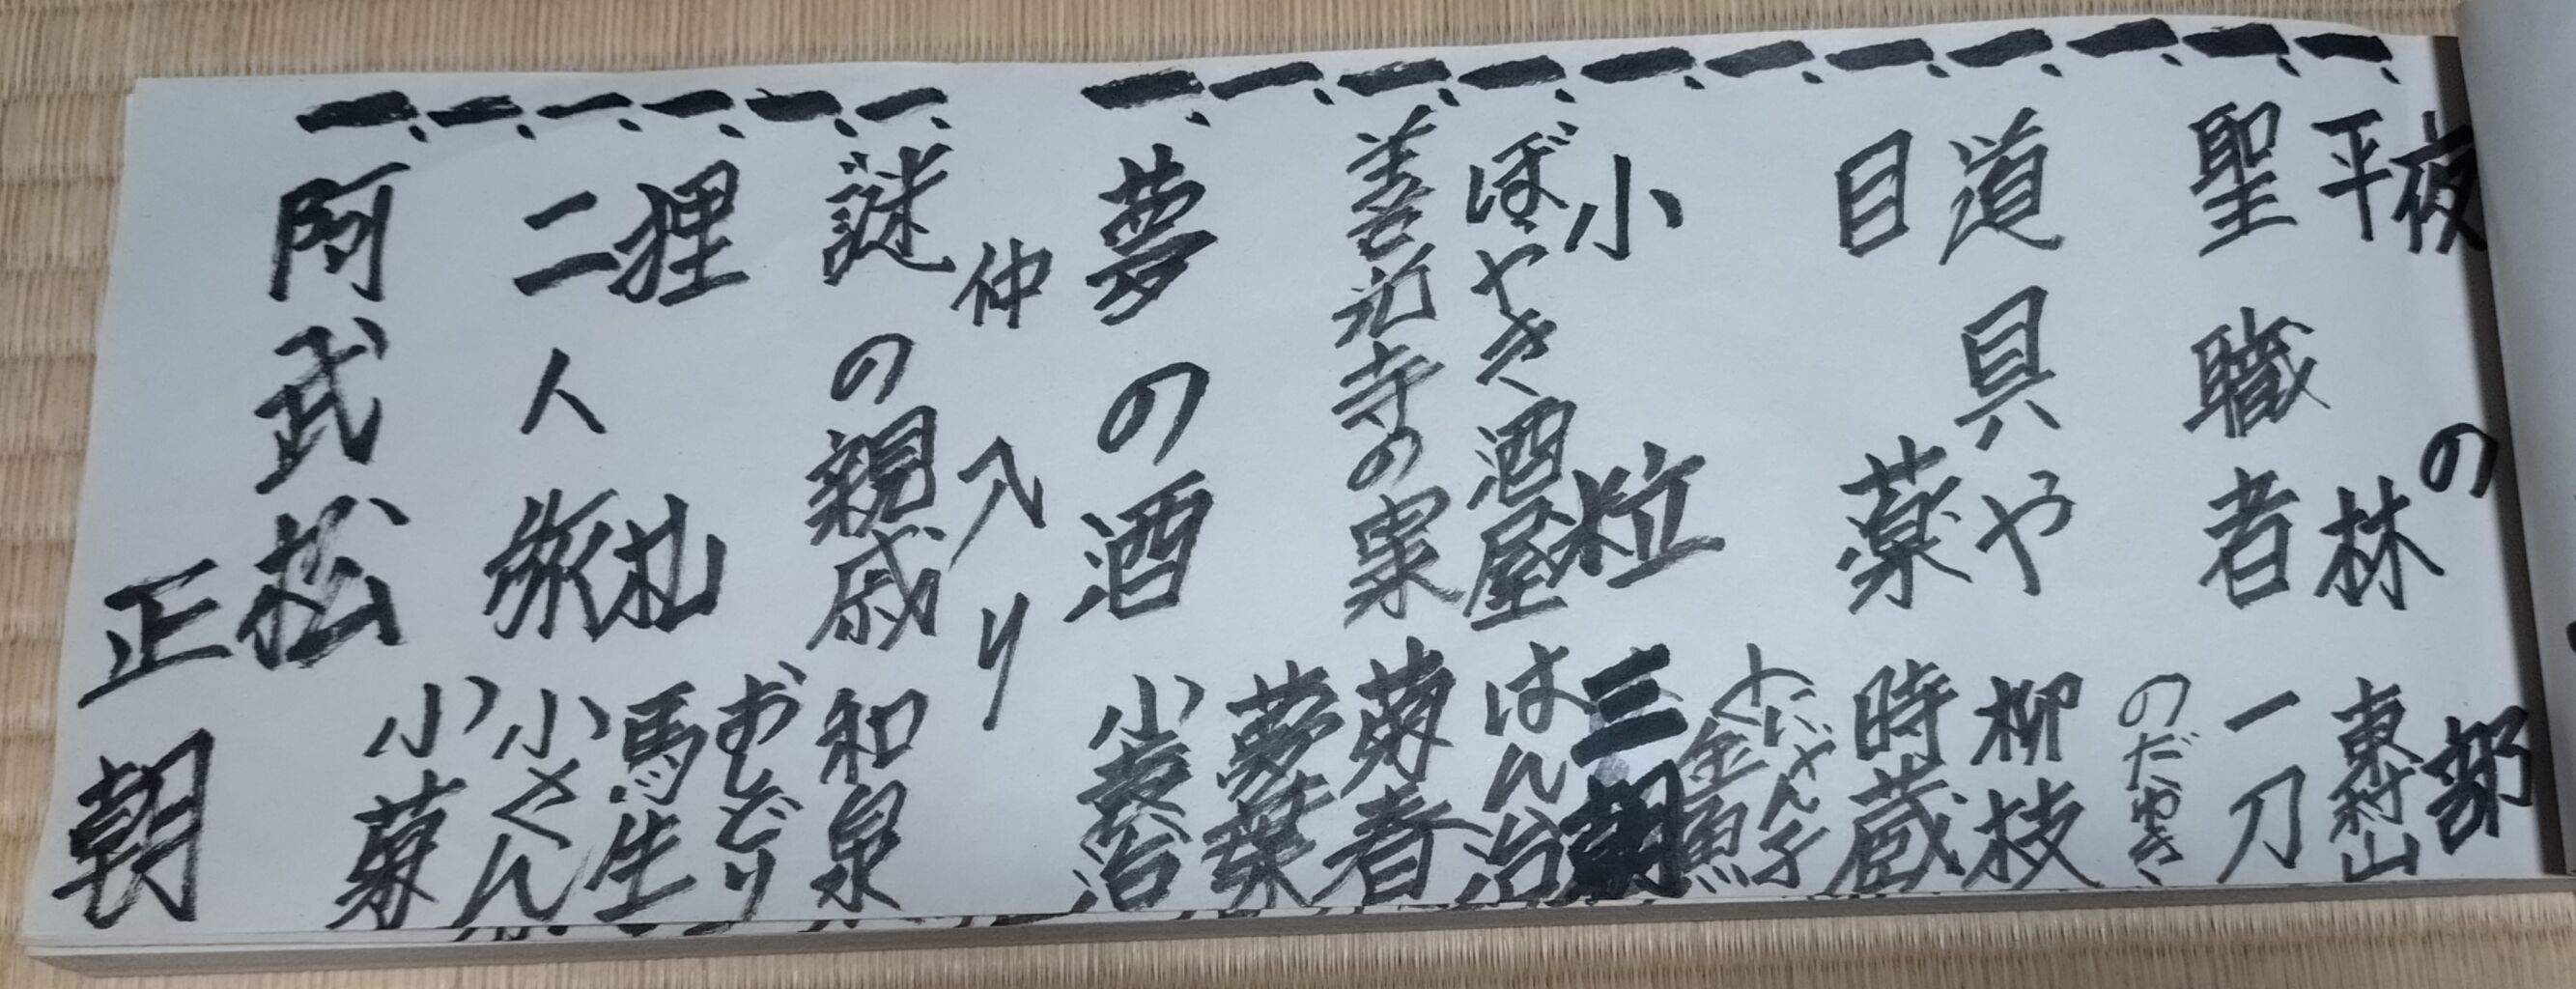 夜の部
一、平林 東村山
一、聖職者 一刀
一、 のだゆき
一、道具や 柳枝
一、目薬 時蔵
一、 にゃん子 金魚
一、小粒 三朝
一、ぼやき酒屋 はん治
一、善光寺の 菊者
一、 夢葉
一、夢の酒 小袁治
仲入り
一、謎の親戚 和泉
一、 おしどり
一、狸札 馬生
一、二人旅 小さん
一、 小菊
一、阿武松 正朝